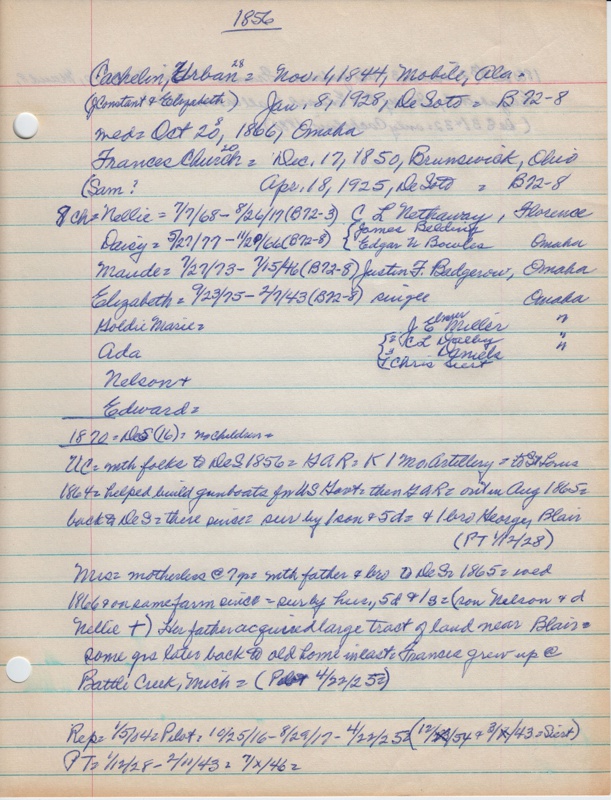 1856
Cachelin, Urban 28 = Nov. 1, 1844, Mobile, Ala -
(Constant & Elizabeth) Jan. 8, 1928, De Soto = B72-8
med = Oct 20, 1866, Omaha
Frances Church 20 = Dec. 17, 1850, Brunswick, Ohio
(Sam? Apr. 18, 1925, De Soto = B72-8
8 ch = Nellie = 7/7/68 - 8/26/17 (B72-3) C L Nethaway, Florence
Daisy = 5/27/77 - 11/29/66 (B72-8) { James Belding
Edgar N Bowles Omaha
Maude = 7/27/73 - 7/15/46 (B72-8) Justin F. Bedgerow, Omaha
Elizabeth = 9/23/75 - 2/7/43 (B72-8) single Omaha
Goldie Marie = J Elmer Miller "
Ada {2= C L Dalby "
3 Daniels
4 Chris Siert
Nelson +
Edward =
1870 = DeS (16) = no children =
UC = with folks to DeS 1856 = GAR = K 1 Mo. Artillery = to St Louis
1864 = helped build gunboats for US Govt = then GAR = out in Aug 1865 =
back to DeS = there since = sur by 1 son & 5 d = & 1 bro George, Blair
(PT 1/12/28)
Mrs = motherless @ 7 yr = with father & bro to DeS = 1865 = wed
1866 & on same farm since = sur by hus., 5 d & 1 s = (son Nelson & d
Nellie +) Her father acquired large tract of land near Blair =
some yrs later back to old home in east = Frances grew up @
Battle Creek, Mich = (Pilot 4/22/25 =)
Rep = 1/5/04 = Pilot = 10/25/16 - 8/29/17 - 4/22/25 = (12/ /54 & 3/X/43 = Siert)
PT = 1/12/28 - 2/11/43 = 7/X/46 =